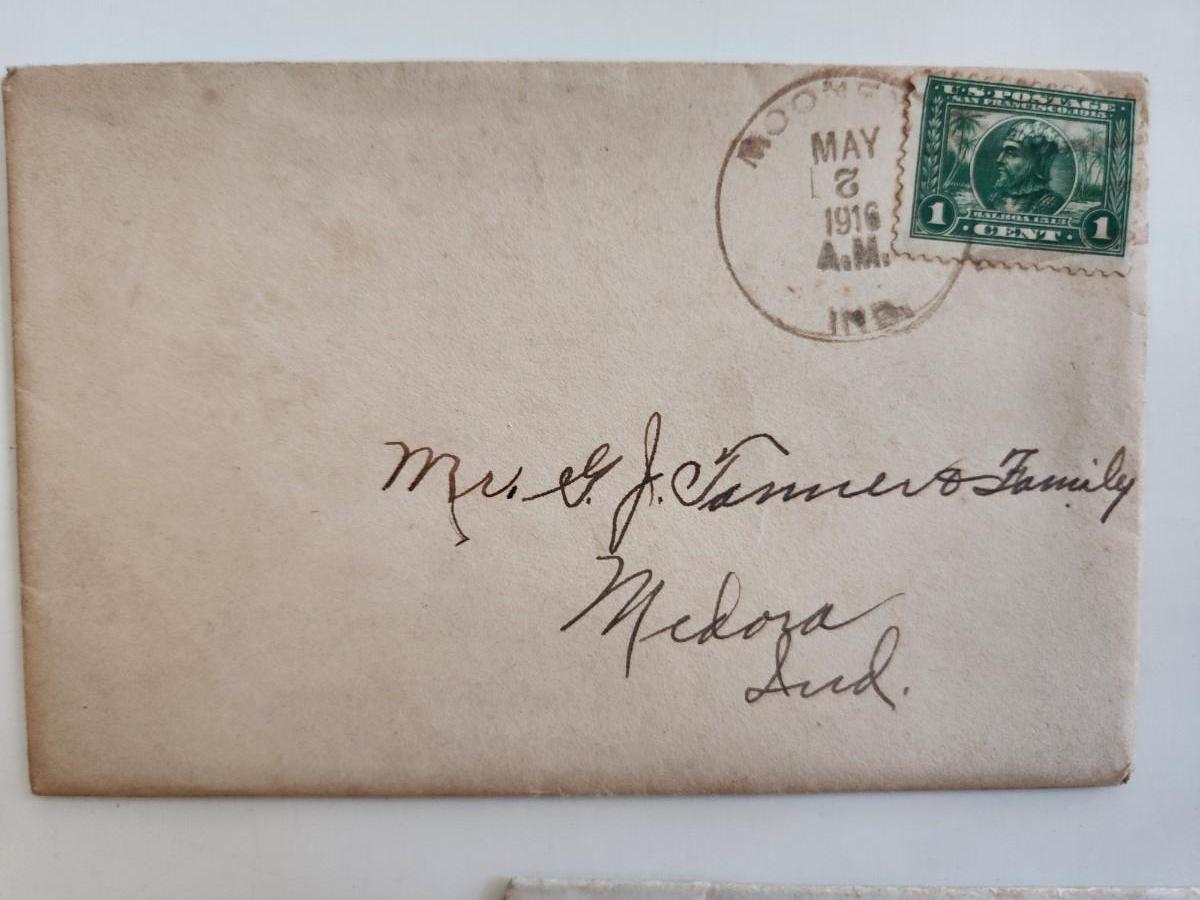 MOONEY
MAY
2
1916
A.M.
IND.
U.S. POSTAGE
SAN FRANCISCO 1915
BALBOA 1513
1 CENT 1
Mr. G. J. Tanner & Family
Medora
Ind.